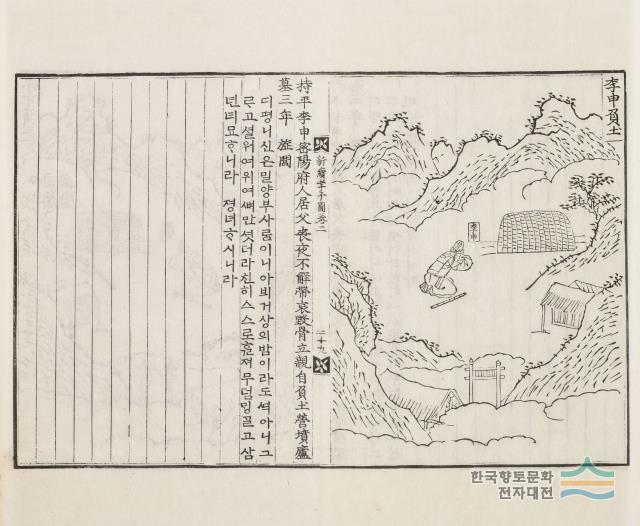 李申負土
李申
持平李申密陽府人居父喪夜不解帶哀毀骨立親自負土營墳廬
墓三年 旌閭
디평니신은밀양부사ᄅᆞᆷ이니아비거상의밤이라도ᄯᅴ아니그
ᄅᆞ고셜워여위여ᄲᅧ만셧더라친히스스로ᄒᆞᆰ져무덤ᄆᆡᆼᄀᆞᆯ고삼
년녀묘ᄒᆞ니라 졍녀ᄒᆞ시니라
新續孝子圖卷二
二十九
한국향토문화
전자대전